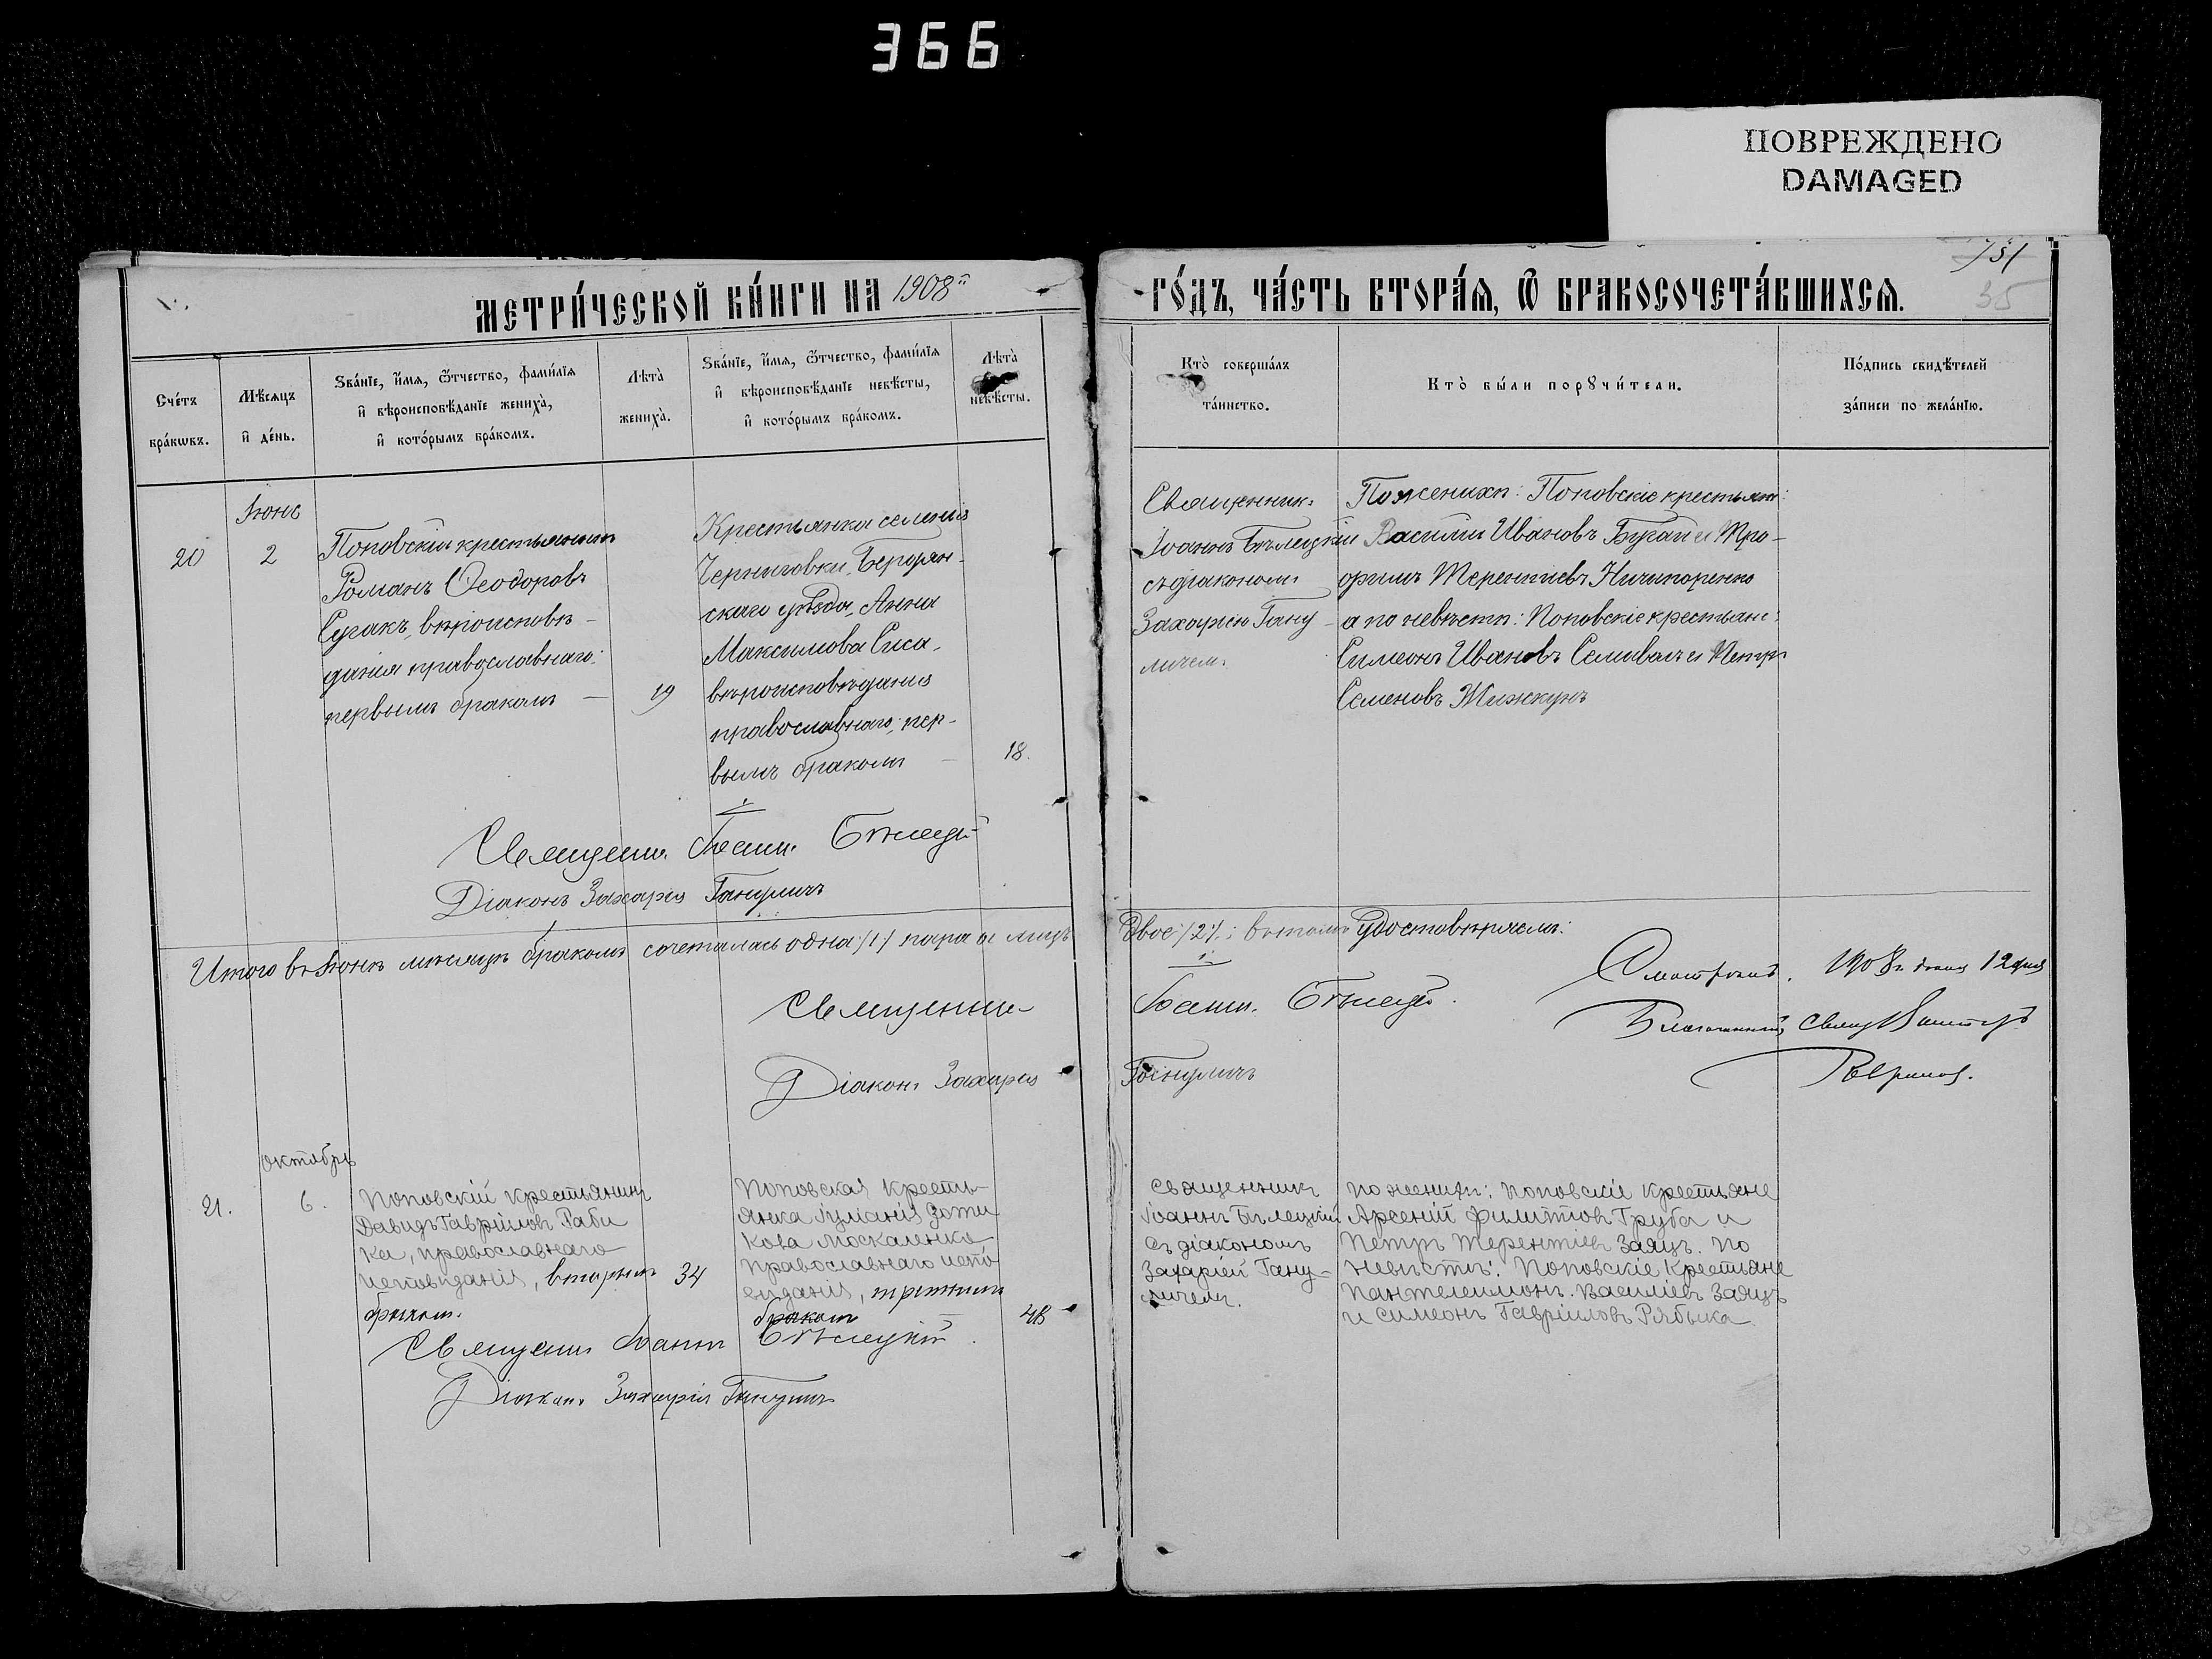 366
ПОВРЕЖДЕНО
DAMAGED
151
35
МЕТРИ́ЧЕСКОЙ КНИ́ГИ НА 1908й
ГО́ДЪ, ЧА́СТЬ ВТОРА́Я, Ѡ БРАКОСОЧЕТА́ВШИХСЯ.
Сче́тъ
бра́кωвъ.
Мѣ́сяцъ
и҆ де́нь.
Ѕва́нїе, и҆́мѧ, ѻ҆́тчество, фами́лїѧ
и҆ вѣроисповѣ́данїе жениха̀,
и҆ кото́рымъ бра́комъ.
Лѣта̀
жениха̀.
Ѕва́нїе, и҆́мѧ, ѻ҆́тчество, фами́лїѧ
и҆ вѣроисповѣ́данїе невѣ́сты,
и҆ кото́рымъ бра́комъ.
Лѣта̀
невѣ́сты.
Кто̀ соверша́лъ
та́инство.
Кто̀ бы́ли порꙋчи́тели.
По́дпись свидѣ́телей
за́писи по жела́нїю.
Іюнь
20
2
Поповскій крестьянинъ
Романъ Ѳеодоровъ
Сугакъ, вѣроисповѣ-
данія православнаго;
первымъ бракомъ —
19
Крестьянка селенія
Черниговки, Бердян-
скаго уѣзда, Анна
Максимова Сиса,
вѣроисповѣданія
православнаго; пер-
вымъ бракомъ —
18.
Священникъ
Іоаннъ Бѣлецкій
съ діакономъ
Захаріею Гану-
личемъ.
По женихѣ: Поповскіе крестьяне:
Василій Ивановъ Бугай и Тро-
фимъ Терентіевъ Ничипоренко
а по невѣстѣ: Поповскіе крестьяне:
Симеонъ Ивановъ Семиволъ и Петръ
Семеновъ Жижкунъ
Священни. Іоанн. Бѣлецкі
Діаконъ Захарія Гануличъ
Итого въ Іюнѣ мѣсяцѣ бракомъ сочеталась одна /1/ пара а лицъ двое /2/; въ томъ удостовѣряемъ:
Священни Іоанн. Бѣлецкі.
Діаконъ Захарія Гануличъ
Смотрѣлъ. 1908 г. Іюня 12 дня
Благочинный Свящ
октябрь
21.
6.
Поповскій крестьянинъ
Давидъ Гавріиловъ Раби
ка, православнаго
исповиданія, вторымъ
бракомъ.
34
Поповская кресть-
янка Іуліанія Зоти
кова Москаленко
православнаго испо
виданія, третьимъ
бракомъ
48
священникъ
Іоаннъ Бѣлецкій
съ діакономъ
Захаріей Гану-
личем.
по женихѣ: поповскіе крестьяне
Арсеній Филиповъ Труба и
Петръ Терентіевъ Заяцъ. по
невѣстѣ: Поповскіе крестьяне
Пантелеимонъ Василіевъ Заяцъ
и симеонъ Гавріиловъ Рябыка
Священни Іоаннъ Бѣлецкій
Діакон. Захарія Ганулич